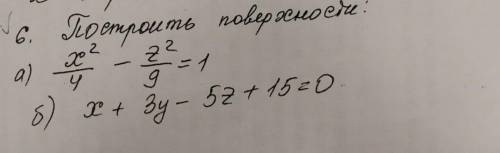 6. Построить поверхности:
а) x²/4 − z²/9 = 1
б) x + 3y − 5z + 15 = 0